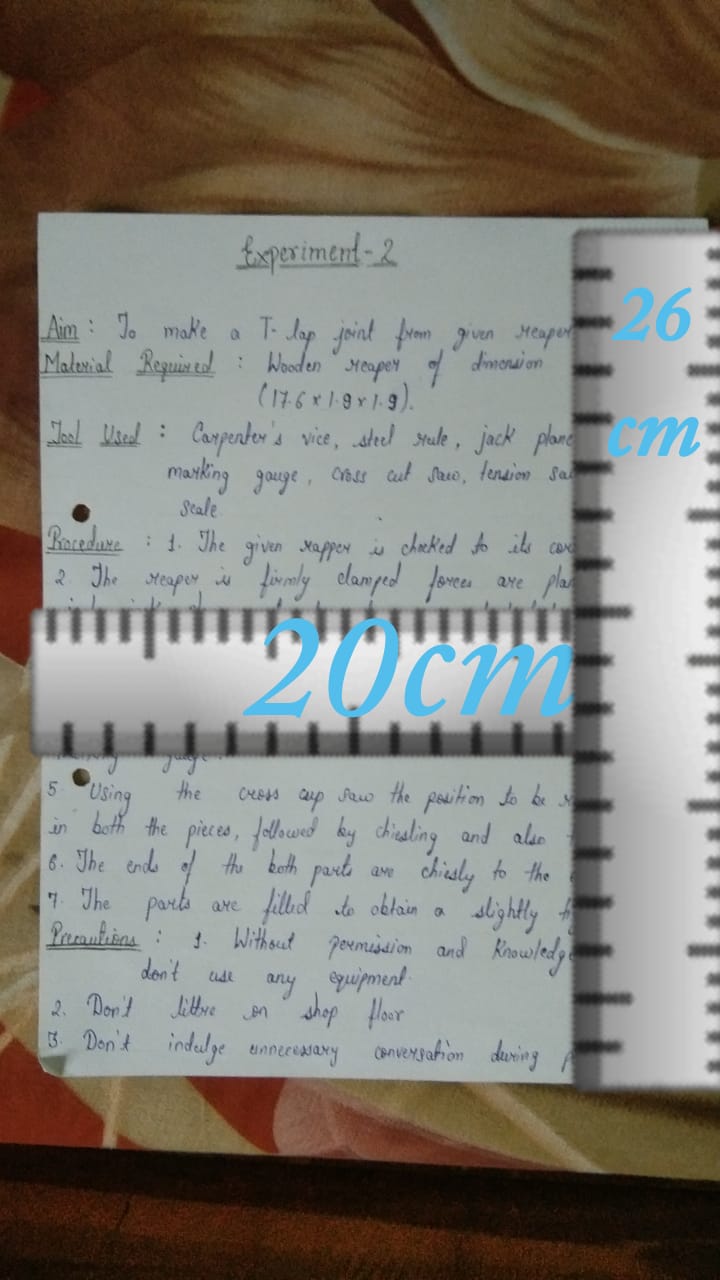 Experiment-2
Aim : To make a T-lap joint from given reaper
Material Required : Wooden reaper of dimension
(17.6 x 1.9 x 1.9).
Tool Used : Carpenter's vice, steel rule, jack plane
marking gauge, cross cut saw, tension sa
Scale
Procedure : 1. The given rapper is checked to its
2. The reaper is firmly clamped forces are
5. Using the cross cup saw the position to be
in both the pieces, followed by chiesling and also
6. The ends of the both parts are chiesly to the
7. The parts are filled to obtain a slightly
Precautions : 1. Without permission and Knowledge
don't use any equipment.
2. Don't littre on shop floor
3. Don't indulge unnecessary conversation during
26
cm
20cm